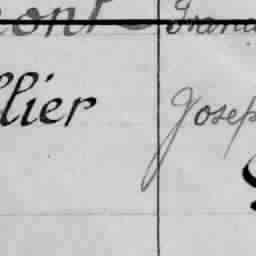 mont Franc
llier Josep